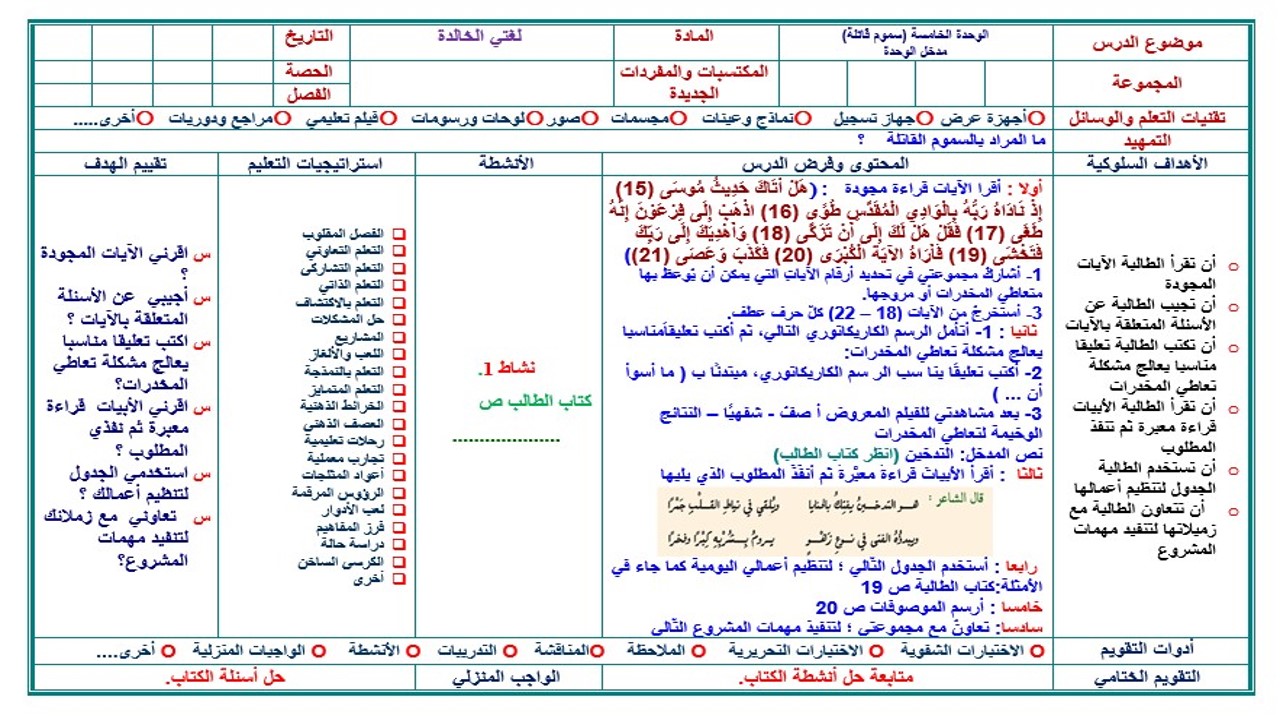 موضوع الدرس
الوحدة الخامسة (سموم قاتلة)
مدخل الوحدة
المادة
لغتي الخالدة
التاريخ
المجموعة
المكتسبات والمفردات
الجديدة
الحصة
الفصل
تقنيات التعلم والوسائل
أجهزة عرض جهاز تسجيل نماذج وعينات مجسمات صور لوحات ورسومات فيلم تعليمي مراجع ودوريات أخرى.....
التمهيد
ما المراد بالسموم القاتلة ؟
الأهداف السلوكية
المحتوى وفرض الدرس
الأنشطة
استراتيجيات التعليم
تقييم الهدف
أن تقرأ الطالبة الآيات
المجودة
أن تجيب الطالبة عن
الأسئلة المتعلقة بالآيات
أن تكتب الطالبة تعليقا
مناسبا يعالج مشكلة
تعاطي المخدرات
أن تقرأ الطالبة الأبيات
قراءة معبرة ثم تنفذ
المطلوب
أن تستخدم الطالبة
الجدول لتنظيم أعمالها
أن تتعاون الطالبة مع
زميلاتها لتنفيد مهمات
المشروع
أولا : أقرا الآيات قراءة مجودة : (هَلْ أَتَاكَ حَدِيثُ مُوسَى (15)
إِذْ نَادَاهُ رَبُّهُ بِالْوَادِي الْمُقَدَّسِ طُوًى (16) اذْهَبْ إِلَى فِرْعَوْنَ إِنَّهُ
طَغَى (17) فَقُلْ هَلْ لَكَ إِلَى أَنْ تَزَكَّى (18) وَأَهْدِيَكَ إِلَى رَبِّكَ
فَتَخْشَى (19) فَأَرَاهُ الآيَةَ الْكُبْرَى (20) فَكَذَّبَ وَعَصَى (21))
1- أشارك مجموعتي في تحديد أرقام الآيات التي يمكن أن يُوعظ بها
متعاطي المخدرات أو مروجها.
3- أستخرجُ من الآيات (18 – 22) كلّ حرف عطف.
ثانيا : 1- أتأمل الرسم الكاريكاتوري التالي، ثم أكتب تعليقاًمناسبا
يعالج مشكلة تعاطي المخدرات:
2- أكتب تعليقًا ينا سب الر سم الكاريكاتوري، مبتدئًا ب ( ما أسوأ
أن ... )
3- بعد مشاهدتي للفيلم المعروض أ صفُ - شفهيًا – النتائج
الوخيمة لتعاطي المخدرات
نص المدخل: التدخين (انظر كتاب الطالب)
ثالثا : أقرأ الأبياتَ قراءةً معبِّرة ثم أنفّذ المطلوب الذي يليها
قال الشاعر :
هـــو التدخــينُ يفتِكُ بالمنايا ويُلقي في نياطِ القـــلبِ جَمْرًا
ويبدؤُهُ الفتى في نــوعِ زَهْــوٍ يــرومُ بِــشُرْبِهِ كِبْرًا وفخرًا
رابعا : أستخدم الجدول التّالي ؛ لتنظيم أعمالي اليومية كما جاء في
الأمثلة:كتاب الطالبة ص 19
خامسا : أرسم الموصوفات ص 20
سادسا: تعاونْ مع مجموعتي ؛ لتنفيذ مهمات المشروع التّالي
نشاط 1.
كتاب الطالب ص
.....................
الفصل المقلوب
التعلم التعاوني
التعلم التشاركي
التعلم الذاتي
التعلم بالاكتشاف
حل المشكلات
المشاريع
اللعب والألغاز
التعلم بالنمذجة
التعلم المتمايز
الخرائط الذهنية
العصف الذهني
رحلات تعليمية
تجارب معملية
أعواد المثلجات
الرؤوس المرقمة
لعب الأدوار
فرز المفاهيم
دراسة حالة
الكرسي الساخن
أخرى
س اقرئي الآيات المجودة
؟
س أجيبي عن الأسئلة
المتعلقة بالآيات ؟
س اكتب تعليقا مناسبا
يعالج مشكلة تعاطي
المخدرات؟
س اقرئي الأبيات قراءة
معبرة ثم نفذي
المطلوب ؟
س استخدمي الجدول
لتنظيم أعمالك ؟
س تعاوني مع زملانك
لتنفيد مهمات
المشروع؟
أدوات التقويم
الاختبارات الشفوية الاختبارات التحريرية الملاحظة المناقشة التدريبات الأنشطة الواجبات المنزلية أخرى....
التقويم الختامي
متابعة حل أنشطة الكتاب.
الواجب المنزلي
حل أسئلة الكتاب.